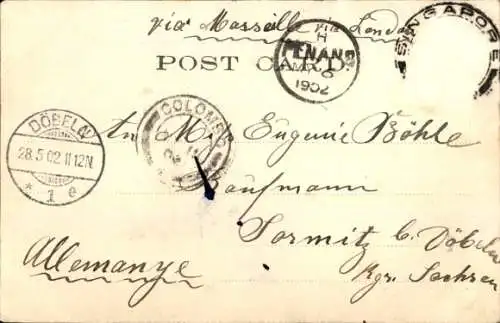 via Marseille via London
POST CARD.
SINGAPORE
PENANG
1902
COLOMBO
DÖBELN
28.5.02.11-12N.
* 1 e
An Mr. Eugenie Böhle
Kaufmann
Sormitz b. Döbeln
Kgr. Sachsen
Allemanye